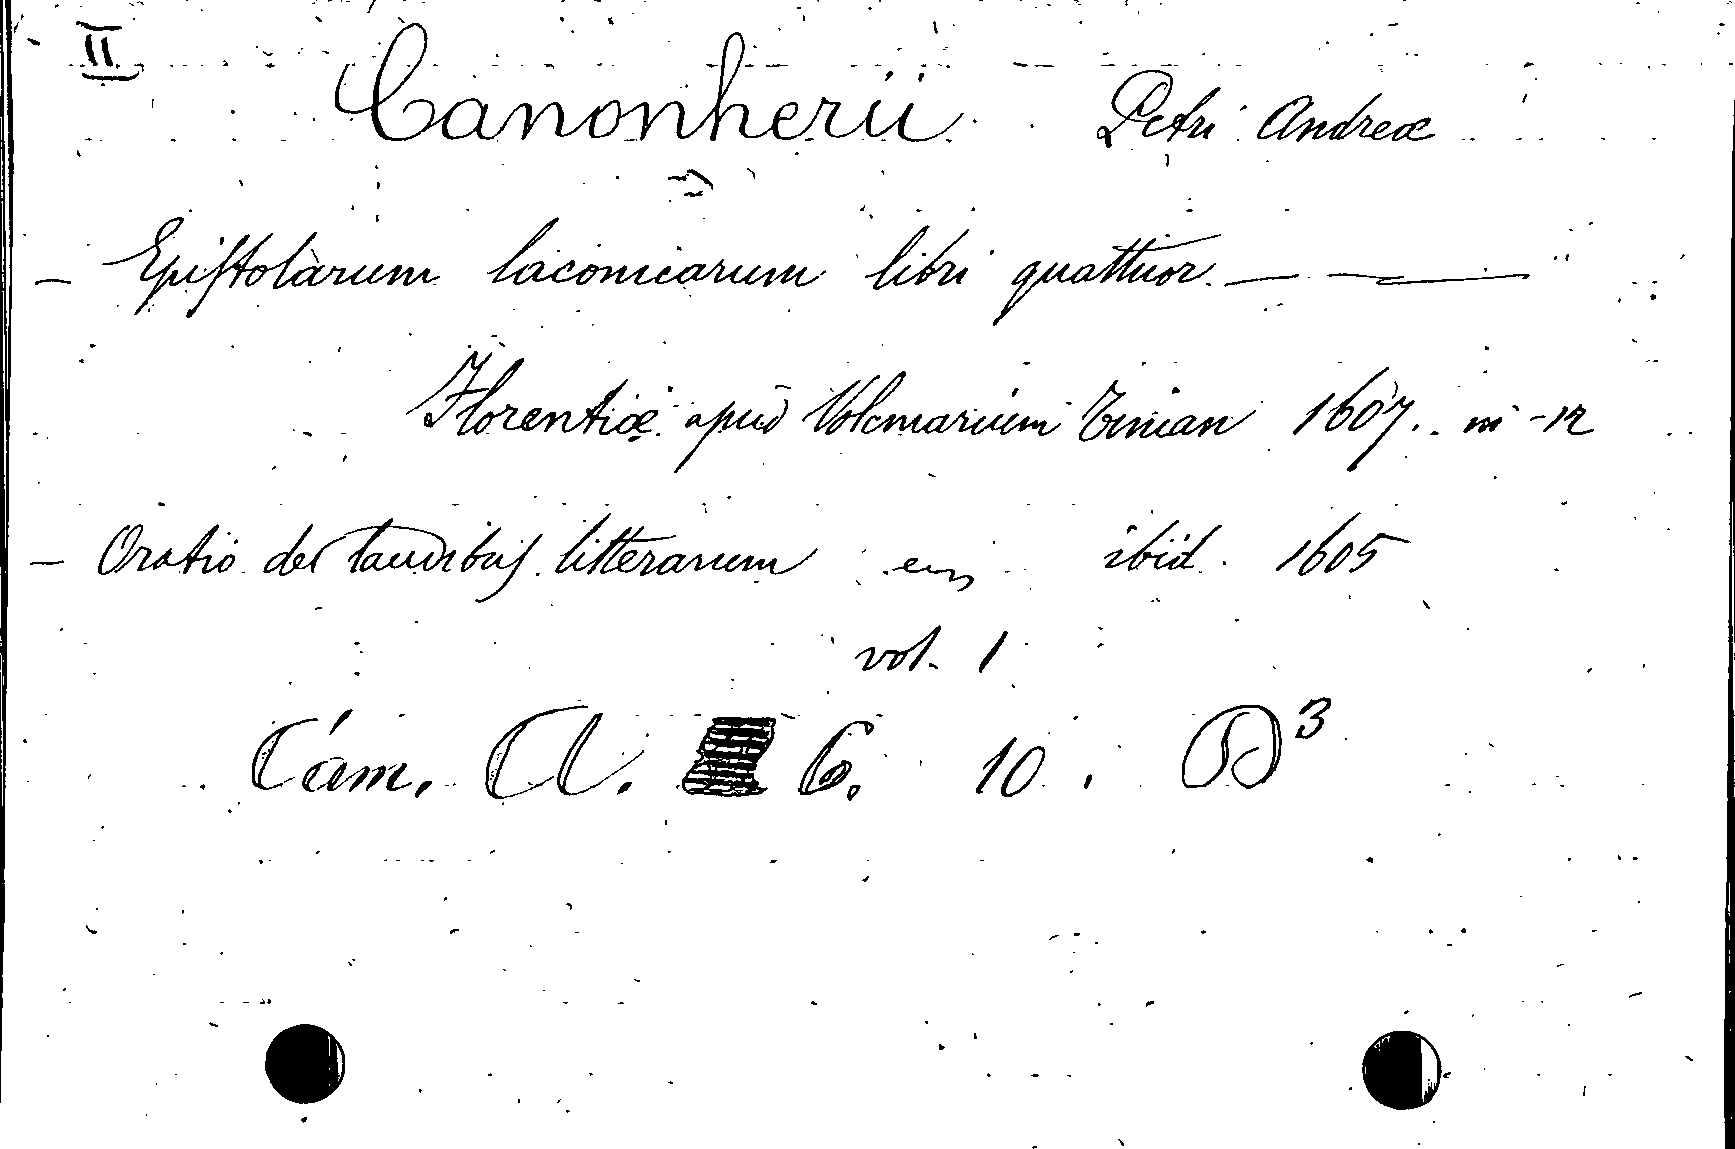 II
Canonherii Petri Andreæ
– Epistolarum laconicarum libri quattuor. — —
Florentiæ apud Volcmarium Timan 1607. in-12
– Oratio de laudibus litterarum ibid. 1605
vol. 1
Cám. A. 6. 10. D³